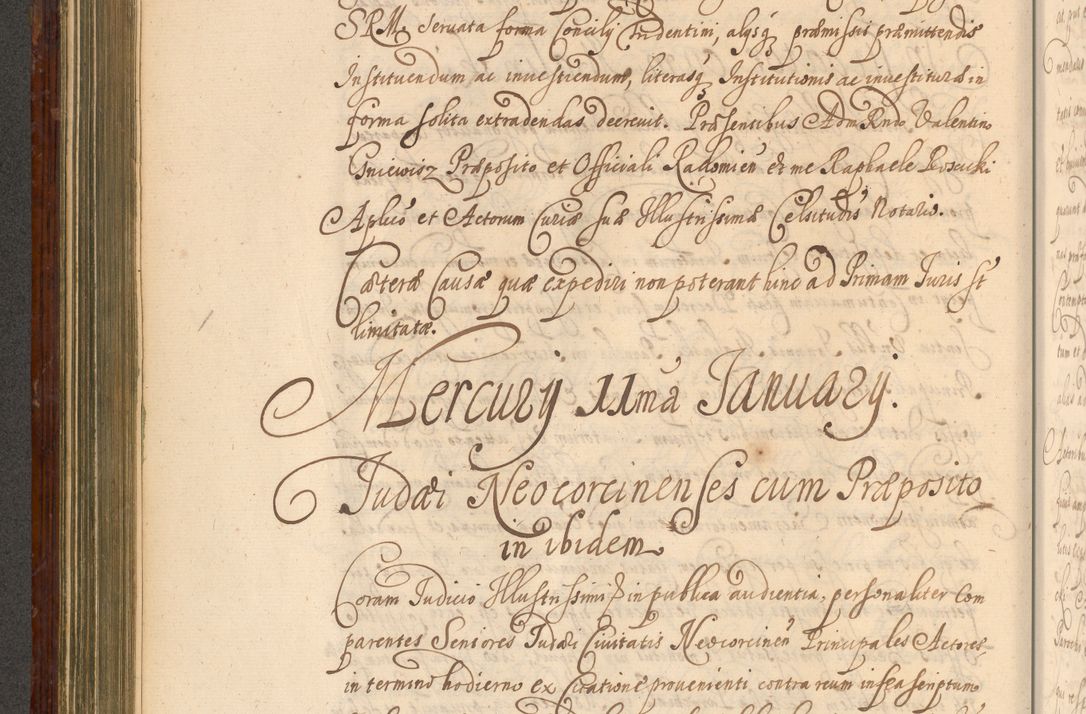 SRM, servata forma Concilij Tridentini, alijsq; præmissis præmittendis
Instituendum ac investiendum, literasq; Institutionis ac investituræ in
forma solita extradendas decrevit. Præsentibus Adm Rndo Valentino
Gniewisz Præposito et Officiali Radomien et me Raphaele
Aplico et Actorum Curiæ suæ Illustrissimæ Celsitudis Notario.
Cæteræ Causæ quæ expediri non poterant hinc ad Primam Juris st
limitatæ.
Mercurij 11ma Januarij.
Judæi Neocorcinenses cum Præposito
in ibidem
Coram Judicio Illustrissimi in publica audientia, personaliter com
parentes Seniores Judæi Civitatis Neocorcinen Principales Actores
in termino hodierno ex Citatione provenienti contra reum infrascriptum